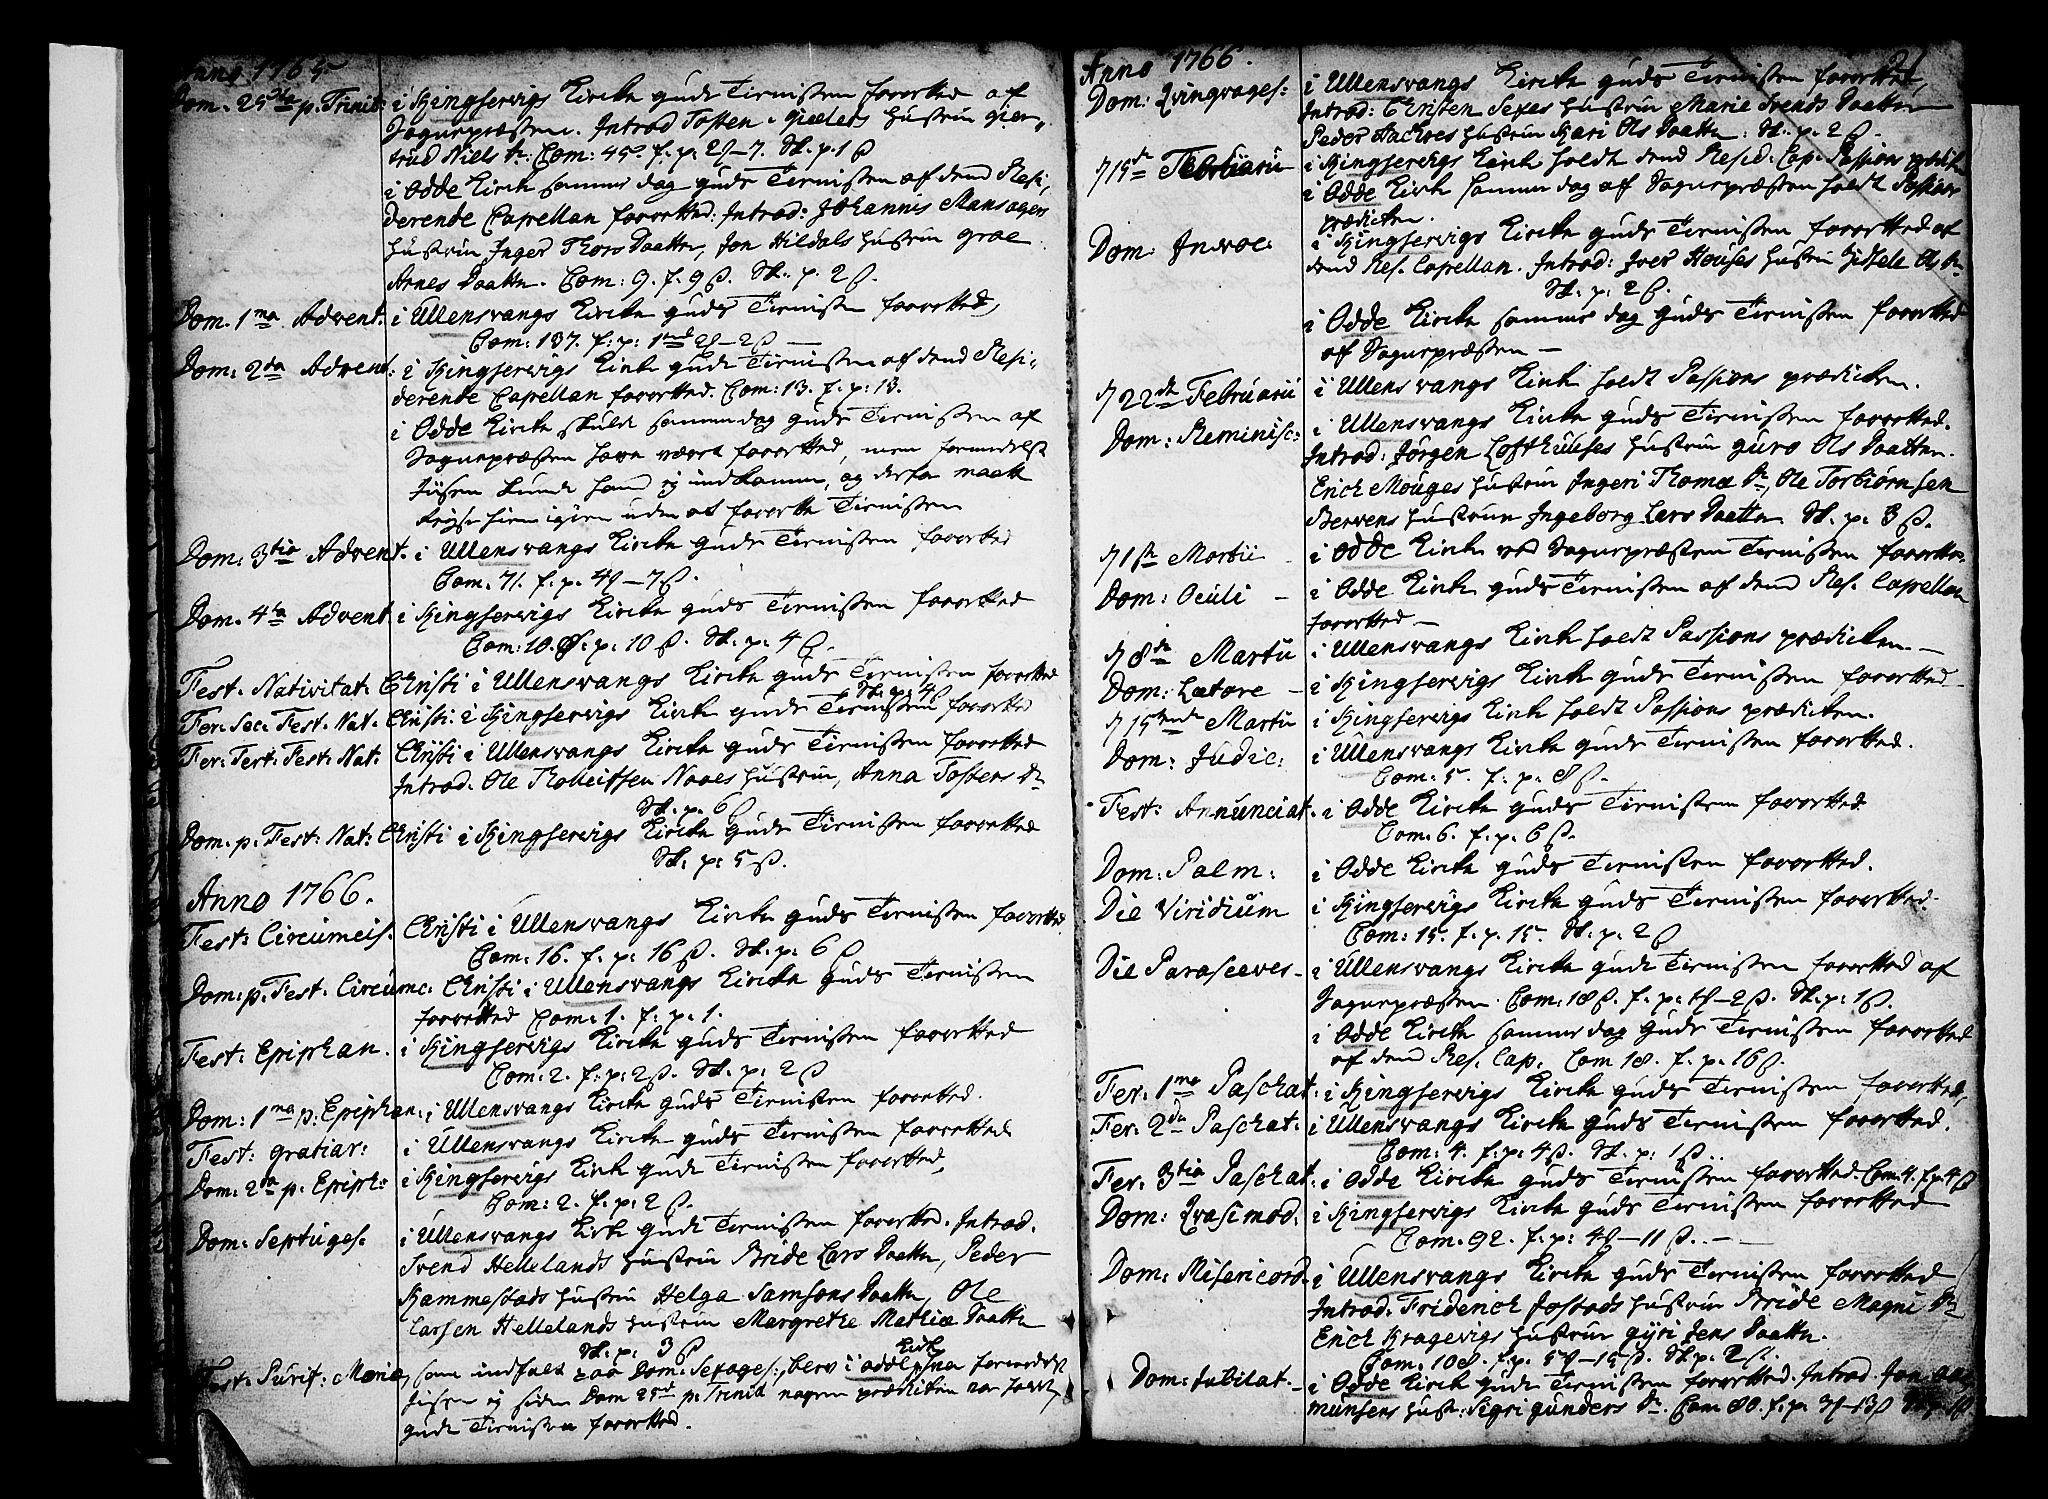 Anno 1765
Dom. 25de p. Trinit: i Kingservigs Kircke Guds Tienisten forretted af
Sognepræsten. Introd Tosten Hustru Gier-
trud Niels dr. Com: 45. f. p: 2 - 7. Sk. p. 1 ß
i Odde Kircke samme dag Guds Tienisten af dend Resi-
derende Capellan forretted: Introd: Johannis Mansagers
Hustru Inger Thors Daatter, Jon Hildals Hustru Groe
Arnes Daatter. Com: 9. f. 9 ß. Sk. p. 2 ß.
Dom. 1ma Advent. i Ullensvangs Kircke Guds Tienisten forretted
Com: 137. f: p: 1 2 - 2 ß -
Dom: 2da Advent: i Kingservigs Kircke Guds Tienisten af dend Resi-
derende Capellan forretted. Com: 13. f. p: 13.
i Odde Kircke skulde samme dag Guds Tienisten af
Sognepræsten have været forretted, men formedelst
Iisen kunde hand ej indkomme, og derfor maatte
reyse hiem igien uden at forrette Tienisten
Dom: 3tia Advent. i Ullensvangs Kircke Guds Tienisten forretted
Com. 71. f. p. 4 - 7 ß.
Dom. 4ta Advent i Kingservigs Kircke Guds Tienisten forretted
Com: 10. f. p: 10 ß. Sk. p: 4 ß.
Fest. Nativitat. Christi i Ullensvangs Kircke Guds Tienisten forretted
Sk. p. 4
Fer. Sec. Fest. Nat. Christi. i Kingservigs Kircke Guds Tienisten forretted
Fer: Tert: Fest: Nat: Christi i Ullensvangs Kircke Guds Tienisten forretted
Introd. Ole Tholleitssen Naaes Hustru, Anna Tostens dr
Sk. p. 6 ß
Dom. p. Fest: Nat: Christi i Kingservigs Kircke Guds Tienisten forretted
Sk: p: 5 ß.
Anno 1766.
Fest: Circumcis. Christi i Ullensvangs Kircke Guds Tienisten forretted
Com: 16. f. p: 16 ß. Sk: p: 6 ß
Dom: p. Fest. Circumc: Christi i Ullensvangs Kircke Guds Tienisten
forretted Com: 1. f: p. 1.
Fest: Epiphan. i Kingservigs Kircke Guds Tienisten forretted
Com: 2. f: p: 2 ß. Sk. p: 2 ß
Dom: 1ma p: Epiphan: i Ullensvangs Kircke Guds Tienisten forretted.
Fest: gratiar: i Ullensvangs Kircke Guds Tienisten forretted.
Dom: 2da p. Epiph: i Kingservigs Kircke Guds Tienisten forretted,
Com: 2. f. p: 2 ß.
Dom: Septuges: i Ullensvangs Kircke Guds Tienisten forretted. Introd.
Svend Hellelands Hustru Bride Lars Daatter, Peder
Kammestads Hustru Helga Samsons Daatter, Ole
Larsen Hellelands Hustru Margrethe Mathiæ Daatter
Sk: p: 3 ß
Fest: Purif: Mariæ, som indfalt paa Dom: Sexages:, blev i Kirk
Iisen ej siden Dom 25de p: Trinit nogen prædicken
Guds Tienisten forretted.
Anno 1766.
21
Dom: Qvinqvages: i Ullensvangs Kircke Guds Tienisten forretted,
Introd: Christen Sexes Hustru Marie Svends Daatter
Peder Hustru Kari Ols Daatter: Sk. p. 2 ß.
d 15de Februarii i Kingservigs Kircke holdt dend Resid: Cap. Passions prædicken
i Odde Kircke samme dag af Sognepræsten holdt Passions
prædicken.
Dom: Invoc: i Kingservigs Kircke Guds Tienisten forretted af
dend Res. Capellan. Introd: Iver Houses Hustru Zidzele Ols dr
Sk: p: 2 ß.
i Odde Kircke samme dag Guds Tienisten forretted
af Sognepræsten -
d 22de Februarii i Ullensvangs Kircke holdt Passions prædicken.
Dom: Reminisc: i Ullensvangs Kircke Guds Tienisten forretted.
Introd: Jørgen Lofthuuses Hustru Guro Ols Daatter.
Erich Mouges Hustru Ingeri Thomæ dr, Ole Torbiørnsen
Bervens Hustrue Ingeborg Lars Daatter. Sk. p: 3 ß.
d 1ste Martii i Odde Kircke ved Sognepræsten Tienisten forretted.
Dom: Oculi - i Odde Kircke Guds Tienisten af dend Res. Capellan
forretted -
d 8de Martii i Ullensvangs Kircke holdt Passions prædicken. -
Dom: Lætare - i Kingservigs Kircke Guds Tienisten forretted -
d 15tende Martii i Kingservigs Kircke holdt Passions prædicken.
Dom: Judic: i Ullensvangs Kircke Guds Tienisten forretted.
Com: 5. f. p. 8 ß.
Fest: Annunciat. i Odde Kircke Guds Tienisten forretted
Com: 6. f. p. 6 ß.
Dom: Palm: i Odde Kircke Guds Tienisten forretted.
Die Viridium i Kingservigs Kircke Guds Tienisten forretted.
Com: 15. f. p. 15. Sk. p. 2 ß
Die Parasceves - i Ullensvangs Kircke Guds Tienisten forretted af
Sognepræsten. Com: 18 ß. f. p: 1 - 2 ß. Sk: p: 1 ß.
i Odde Kircke samme dag Guds Tienisten forretted
af dend Res. Cap. Com 18. f. p. 16 ß.
Fer. 1ma Paschat: i Kingservigs Kircke Guds Tienisten forretted,
Fer: 2da Paschat: i Ullensvangs Kircke Guds Tienisten forretted.
Com: 4. f: p: 4 ß. Sk. p: 1 ß.
Fer. 3tia Paschat: i Odde Kircke Guds Tienisten forretted. Com: 4. f. p. 4 ß
Dom: Qvasimod: i Kingservigs Kircke Guds Tienisten forretted
Com. 92. f. p: 4 - 11 ß. - -
Dom: Misericord. i Ullensvangs Kircke Guds Tienisten forretted
Introd. Friderich Jostads Hustru Bride Magni dr
Erich Kragevigs Hustru Gyri Jens Daatter.
Com: 108. f. p: 5 - 15 ß. Sk: p: 2 ß.
Dom: Jubilat. - i Odde Kircke Guds Tienisten forretted. Introd. Jon Aas
munsens Hust: Sigri Gunders dr. Com 80. f. p. 3 - 13 ß